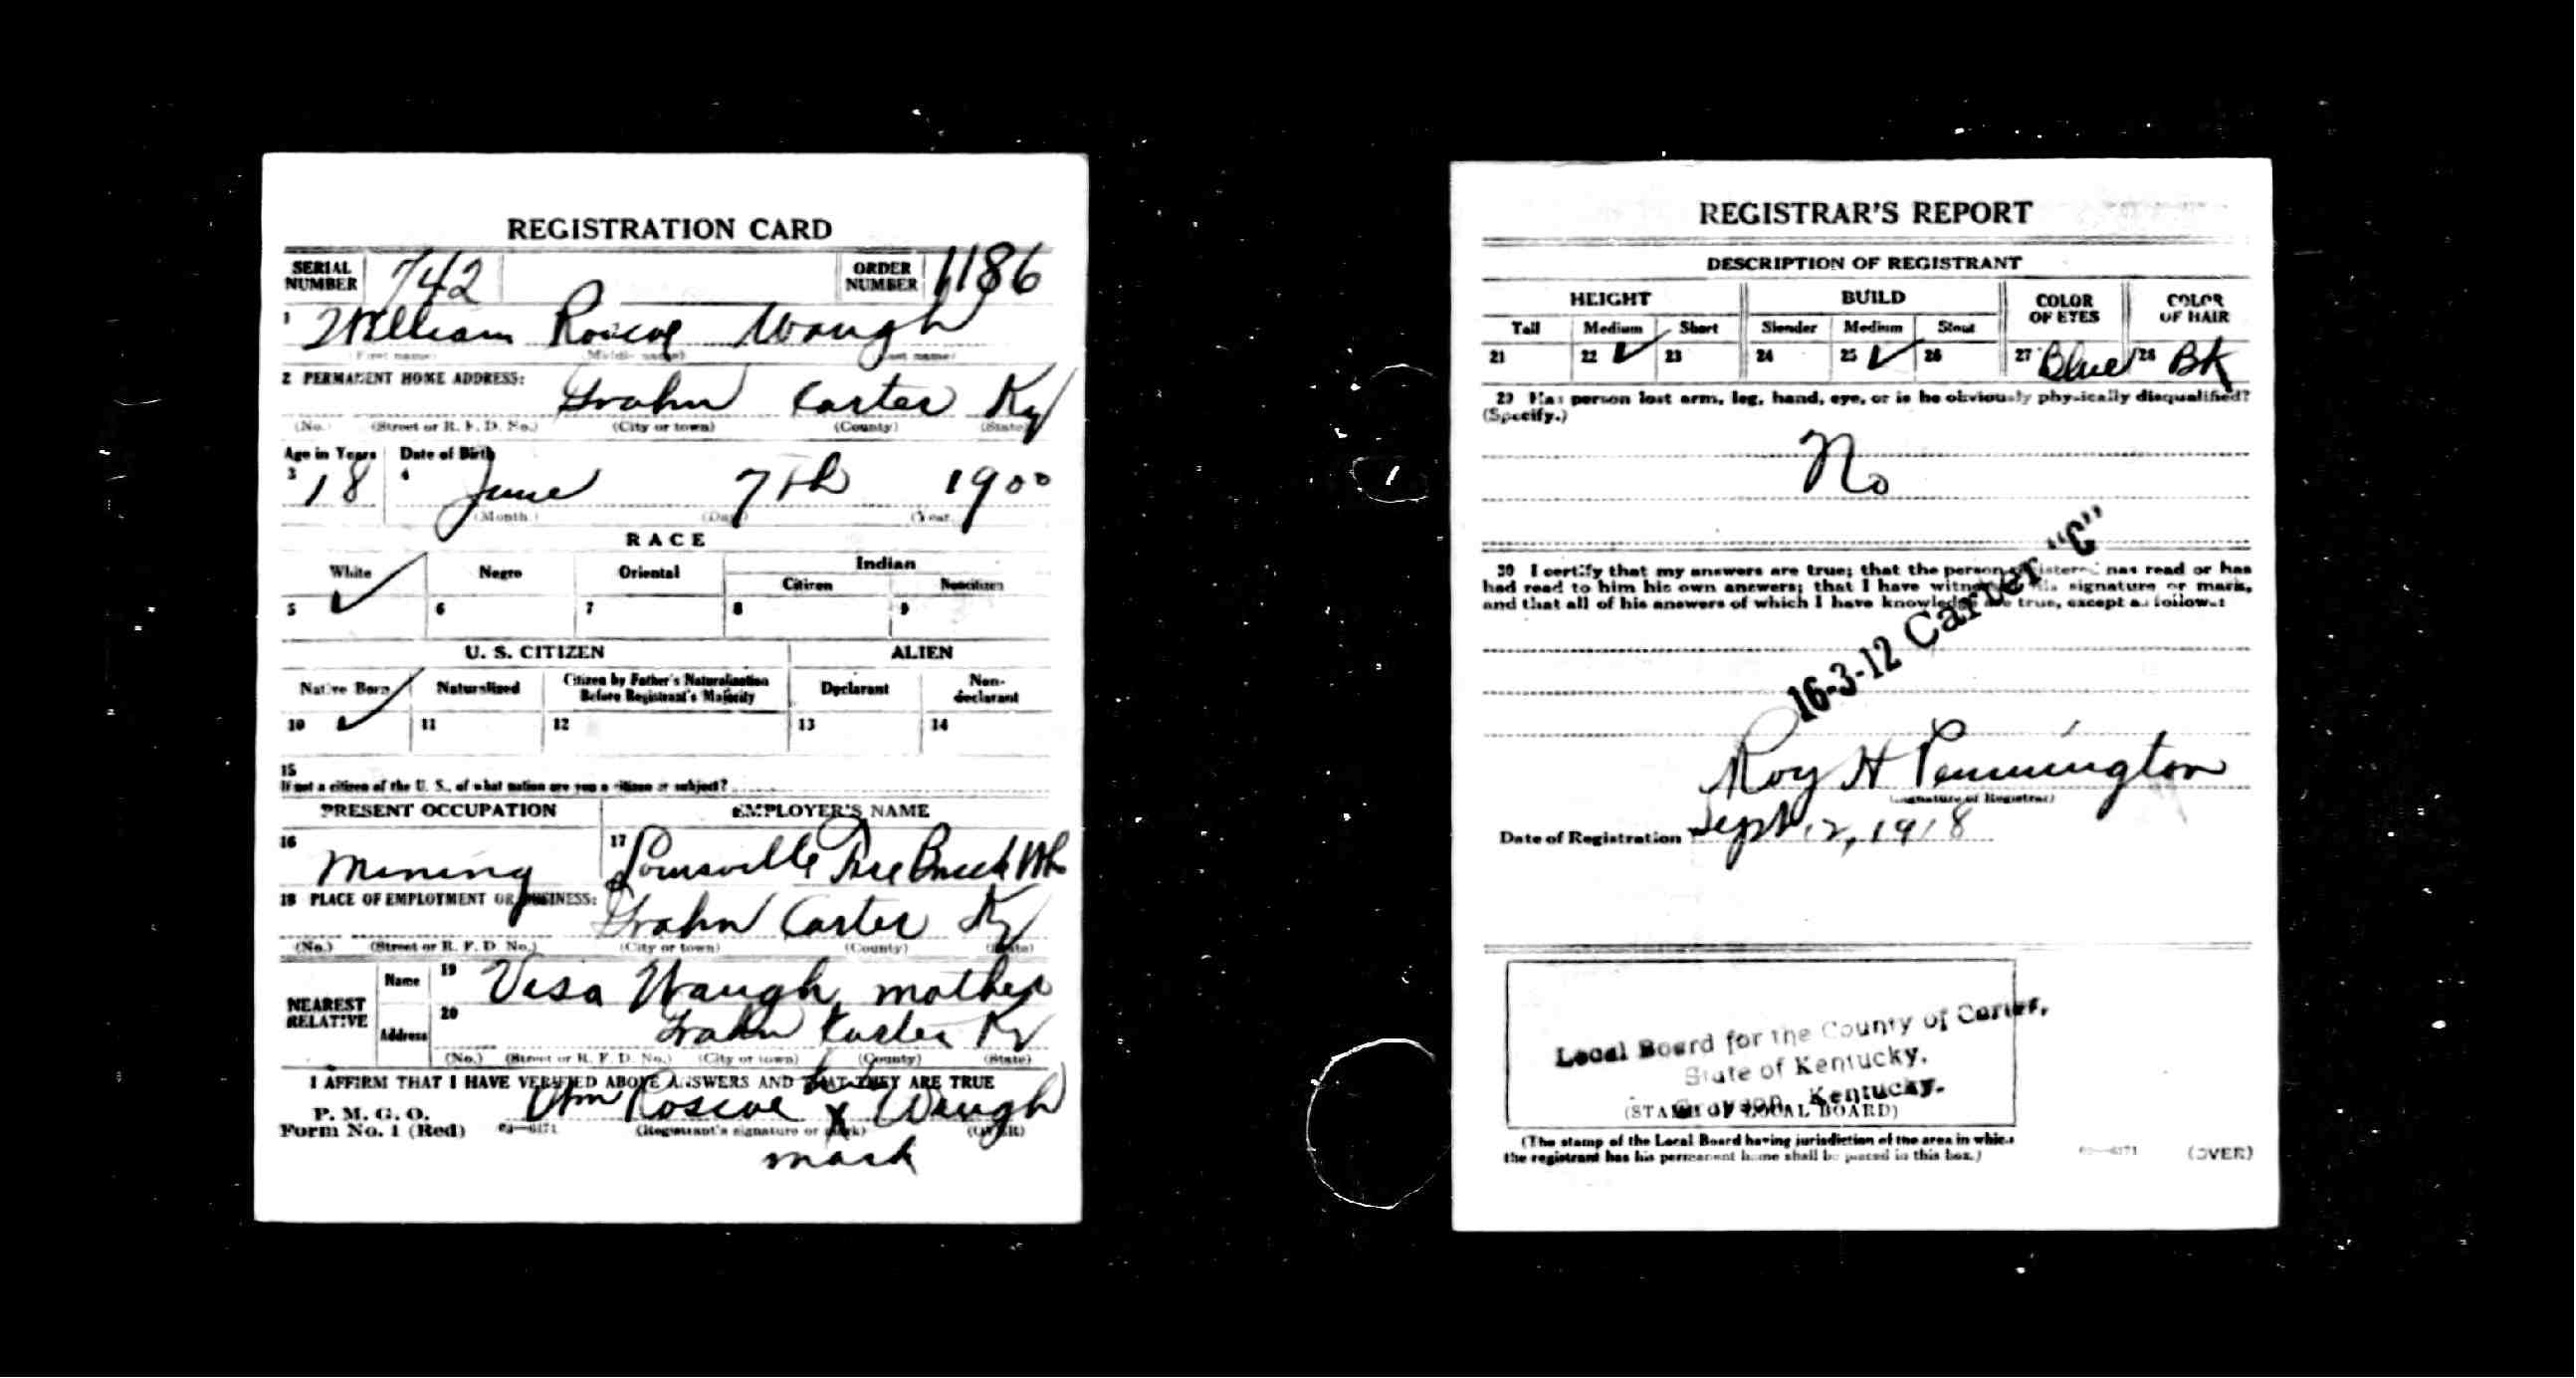 REGISTRATION CARD
SERIAL NUMBER 742 ORDER NUMBER 1186
1 William Roscoe Waugh
(First name) (Middle name) (Last name)
2 PERMANENT HOME ADDRESS:
Grahn Carter Ky
(No.) (Street or R. F. D. No.) (City or town) (County) (State)
Age in Years Date of Birth
3 18 4 June 7th 1900
(Month) (Day) (Year)
RACE
White Negro Oriental Indian
Citizen Noncitizen
5 ✓ 6 7 8 9
U. S. CITIZEN ALIEN
Native Born Naturalized Citizen by Father's Naturalization Before Registrant's Majority Declarant Non-declarant
10 ✓ 11 12 13 14
15
If not a citizen of the U. S., of what nation are you a citizen or subject?
PRESENT OCCUPATION EMPLOYER'S NAME
16 Mining 17 Louisville Fire Brick
18 PLACE OF EMPLOYMENT OR BUSINESS:
Grahn Carter Ky
(No.) (Street or R. F. D. No.) (City or town) (County) (State)
NEAREST RELATIVE
Name 19 Visa Waugh, mother
Address 20 Grahn Karter Ky
(No.) (Street or R. F. D. No.) (City or town) (County) (State)
I AFFIRM THAT I HAVE VERIFIED ABOVE ANSWERS AND THAT THEY ARE TRUE
his
P. M. G. O.
Form No. 1 (Red) Wm Roscoe X Waugh
03—6171 (Registrant's signature or mark) (OVER)
mark
REGISTRAR'S REPORT
DESCRIPTION OF REGISTRANT
HEIGHT BUILD COLOR OF EYES COLOR OF HAIR
Tall Medium Short Slender Medium Stout
21 22 ✓ 23 24 25 ✓ 26 27 Blue 28 BK
29 Has person lost arm, leg, hand, eye, or is he obviously physically disqualified?
(Specify.)
No
30 I certify that my answers are true; that the person registered has read or has
had read to him his own answers; that I have witnessed his signature or mark,
and that all of his answers of which I have knowledge are true, except as follows:
16-3-12 Carter "C"
Roy H Pennington
(Signature of Registrar)
Date of Registration Sept 12, 1918
Local Board for the County of Carter,
State of Kentucky,
Grayson, Kentucky.
(STAMP OF LOCAL BOARD)
(The stamp of the Local Board having jurisdiction of the area in which
the registrant has his permanent home shall be placed in this box.)
03—6171 (OVER)